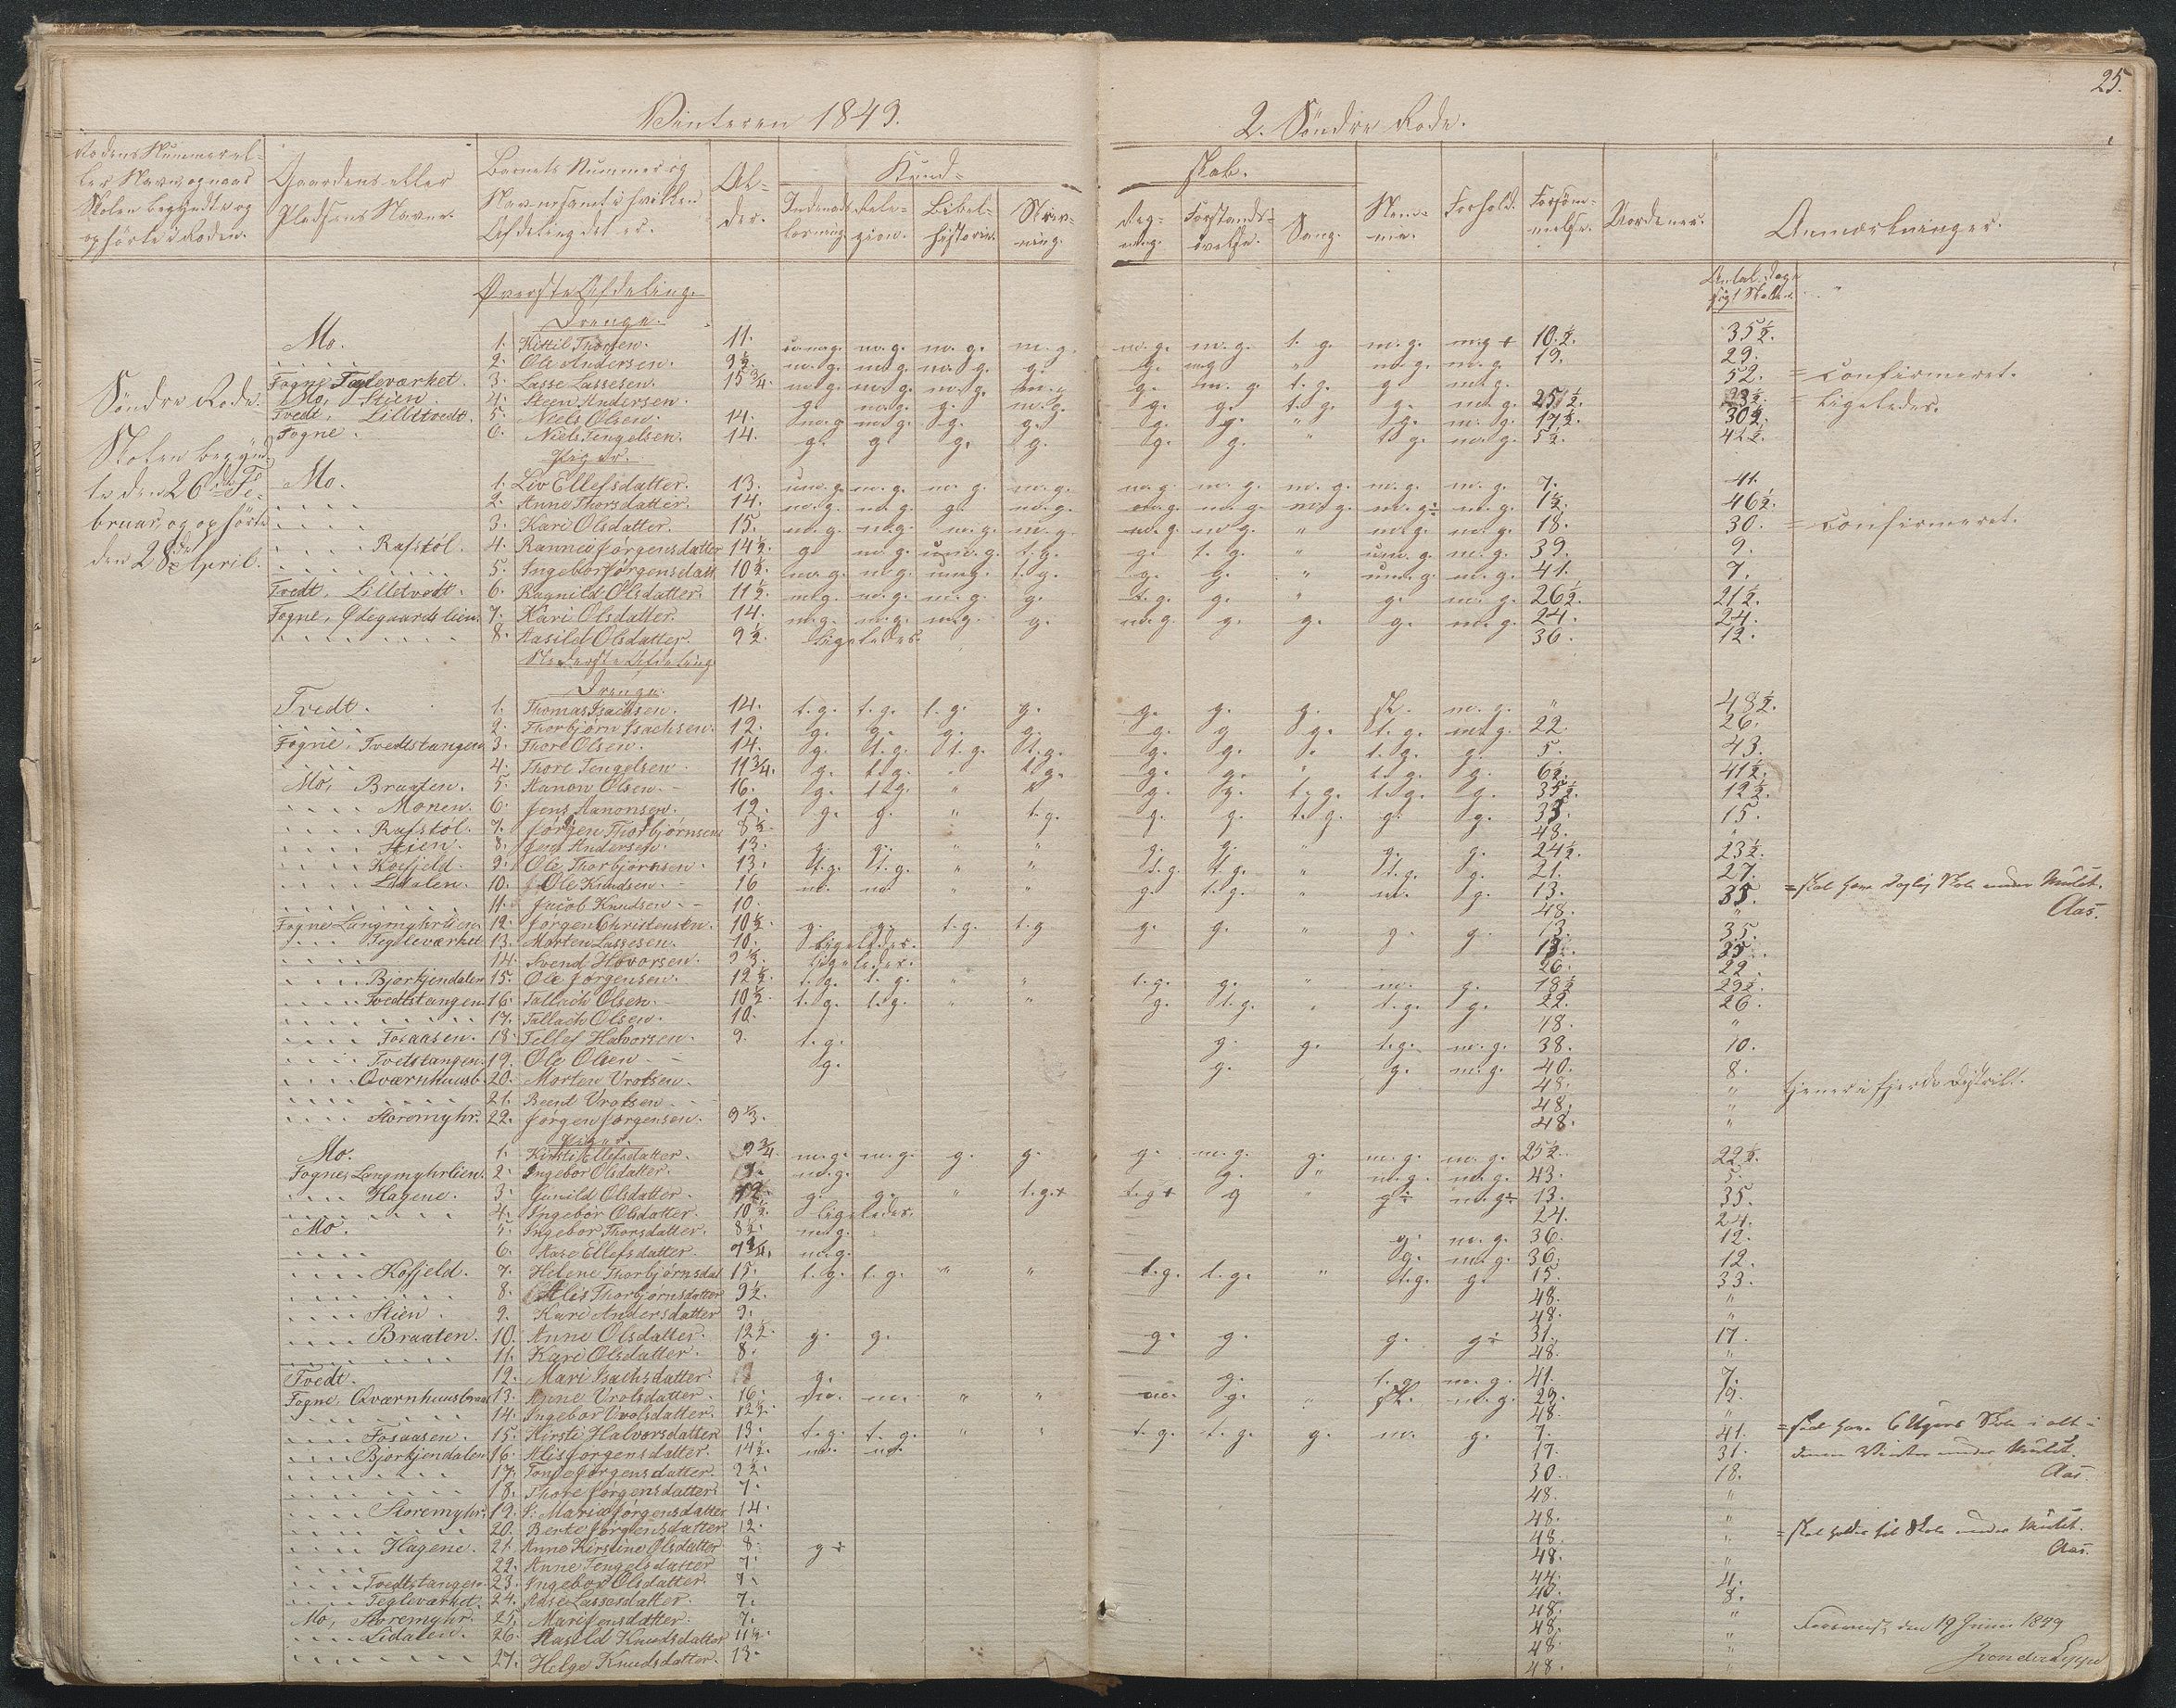 25.
Vinteren 1849.
2. Søndre Rode.
Rodens Nummer el-
ler Navn og naar
Skolen begyndte og
ophørte i Roden.
Gaardens eller
Pladsens Navn.
Barnets Nummer og
Navn samt i hvilken
Afdeling det er.
Al-
der.
Kund-
skab.
Indenads
læsning
Reli-
gion.
Bibel-
historie.
Skriv-
ning.
Reg-
ning.
Forstands-
øvelse.
Sang.
Nem-
me.
Forhold.
Forsøm-
melse.
Anmærkninger.
Antal Dage
søgt Skolen.
Søndre Rode.
Skolen begyn-
te den 26de Fe-
bruar, og ophørte
den 28de April.
Øverste Afdeling.
Drenge.
Mo. 1. Kittil Thorsen. 11. m.g. m.g. m.g. m.g. m.g. t.g. m.g. m.g + 10½. 35½.
2. Ole Andersen. 9½. m.g. m.g. m.g. g. g. m.g " m.g. m.g. 19. 29.
Fogne Tegleværket. 3. Lasse Lassesen. 15¾. m.g. m.g. m.g. m.g. g. m.g. t.g. g. m.g. 52. = Confirmeret.
Mo, Stien. 4. Steen Andersen. g. m.g. g. m.g. g. g. t.g. g. m.g. 25½. 23½. = Ligeledes.
Tvedt, Lilletvedt. 5. Niels Olsen. 14. m.g. m.g. g. g. g. g. " g. m.g. 17½. 30½.
Fogne. 6. Niels Tengelsen. 14. g. g. g. g. g. g. " t.g. m.g. 5½. 42½.
Piger.
Mo. 1. Liv Ellefsdatter. 13. m.g. m.g. m.g. m.g. m.g. m.g. m.g. m.g. 7. 41.
2. Anne Thorsdatter. 14. m.g. m.g. g. m.g. m.g. m.g. m.g. m.g÷ m.g. 1½. 46½.
3. Kari Olsdatter. 15. m.g. m.g. m.g. m.g. m.g. m.g. " m.g. m.g. 18. 30. = Confirmeret.
Rafstøl. 4. Rannei Jørgensdatter 14½. g. m.g. t.g. g. t.g. " m.g. 39. 9.
5. Ingebor Jørgensdatt 10½. m.g. m.g. t.g. g. g. " m.g. 41. 7.
Tvedt, Lilletvedt. 6. Ragnild Olsdatter. 11½. m.g. m.g. m.g. g. t.g. g. " g. m.g. 26½. 21½.
Fogne, Ødegaardslien. 7. Kari Olsdatter. 14. m.g. m.g. m.g. g. m.g. g. g. g. m.g. 24. 24.
8. Aasild Olsdatter. 9½. Ligeledes. 36. 12.
Nederste Afdeling.
Drenge.
Tvedt. 1. Thomas Isachsen. 14. t.g. t.g. t.g. g. g. g. g. sl. m.g. " 48½.
2. Thorbjørn Isachsen. 12. g. g. g. g. g. g g. t.g. m.g. 22. 26.
Fogne, Tvedtstangen. 3. Thore Olsen. 14. g. t.g. t.g. t.g. g. g. " t.g. g. 5. 43.
4. Thore Tengelsen. 11¾. g. t.g. " t.g. g. g. " t.g. g. 6½. 41½.
Mo, Braaten. 5. Aanon Olsen. 16. g. t.g. " " g. g. t.g. t.g. g. 35½. 12½.
Monen. 6. Jens Aanonsen. 12. g. g. " t.g. g. g. t.g. g. g. 33. 15.
Rafstøl. 7. Jørgen Thorbjørnsen 8½. 48. "
Stien. 8. Jens Andersen. 13. g. g. " " g. g. " g. g. 24½. 23½.
Kofjeld. 9. Ole Thorbjørnsen. 13. t.g. t.g. " " t.g. t.g. " t.g. g. 21. 27.
Lidalen. 10. Ole Knudsen. 16 m. m. " " g. t.g. " m. g. 13. 35. = skal have daglig Skole under Mulct.
Aas.
11. Jacob Knudsen. 10. 48. "
Fogne Langmyhrlien. 12. Jørgen Christensen. 10½. g. g. t.g. t.g g. g. " g. g. 13. 35.
Tegleværket 13. Morten Lassesen. 10. Ligeledes. 13. 35.
14. Svend Hovorsen. 9½. Ligeledes. 26. 22.
Bjørkjendalen 15. Ole Jørgensen. 12½. t.g. t.g. " " t.g. g. " m. g. 18½ 29½.
Tvedtstangen 16. Tallach Olsen. 10½. t.g. t.g. " " g. t.g. " t.g. g. 22. 26.
17. Tallach Olsen. 10. 48. "
Fosaasen. 18. Tellef Halvorsen. 9. t.g. g. g. t.g. m.g. 38. 10.
Tvetstangen. 19. Ole Olsen g. g. g. m.g. 40. 8.
Qværnhuusb. 20. Morten Vrolsen. 48. " tjener i fjerde District.
21. Bent Vrolsen 48. "
Storemyhr. 22. Jørgen Jørgensen. 9⅓. 48. "
Piger.
Mo. 1. Kirsti Ellefsdatter. 9¾. m.g. m.g. g. g. g. m.g. g. m.g. m.g. 25½. 22½.
Fogne, Langmyhrlien. 2. Ingebor Olsdatter. m.g. g. " m.g. m.g. 43. 5.
Hagene. 3. Gunild Olsdatter. 12. g. g. " t.g.+ t.g+ g " g÷ m.g÷ 13. 35.
4. Ingebor Olsdatter. 10½. Ligeledes. 24. 24.
Mo. 5. Ingebor Thorsdatter. 8½. m.g. g. m.g. 36. 12.
6. Aase Ellefsdatter. 7¾. m.g. g. m.g. 36. 12.
Kofjeld. 7. Helene Thorbjørnsdat 15. t.g. t.g. " " t.g. t.g. " t.g. g. 15. 33.
8. Alis Thorbjørnsdatter 9½. 48. "
Stien. 9. Kari Andersdatter 9. 48. "
Braaten. 10. Anne Olsdatter. 12½. g. g. g. g. g. g÷ 31. 17.
11. Kari Olsdatter. 8. 48. "
Tvedt. 12. Mari Isachsdatter. g. g. t.g. m.g. 41. 7.
Fogne, Qværnhuusbraat 13. Anne Vrolsdatter. 16. m. " " m. g. " sl. m.g. 29. 19.
14. Ingebor Vrolsdatter. 12½. 48. "
Fosaasen. 15. Kirsti Halvorsdatter 13. t.g. t.g. " " t.g. t.g. g. m. g. 7. 41. = skal have 6 Ugers Skole i alt i
Bjørkjendalen 16. Alis Jørgensdatter. 14½. m. m. 17. 31. denne Vinter under Mulct.
Aas.
17. Tone Jørgensdatter. 9½. 30. 18.
18. Thore Jørgensdatter. 7. 48. "
Storemyhr. 19. Maria Jørgensdatter 14. 48. "
20. Berte Jørgensdatter 12. 48. " = skal holdes til Skole under Mulct.
Aas.
Hagene. 21. Anne Kirstine Olsdatter 8. g÷ 48. "
22. Anne Tengelsdatter 7. 44. 4.
Tvedtstangen 23. Ingebor Olsdatter. 7. 40. 8.
Tegleværket. 24. Aase Lassesdatter. 7. 48. "
Mo, Storemyhr. 25. Mari Jensdatter. 7. 48. "
Lidalen. 26. Aasild Knudsdatter 11½. 48. "
27. Helge Knudsdatter. 13. 48. "
den 19 Juni 1849
J von der Lippe